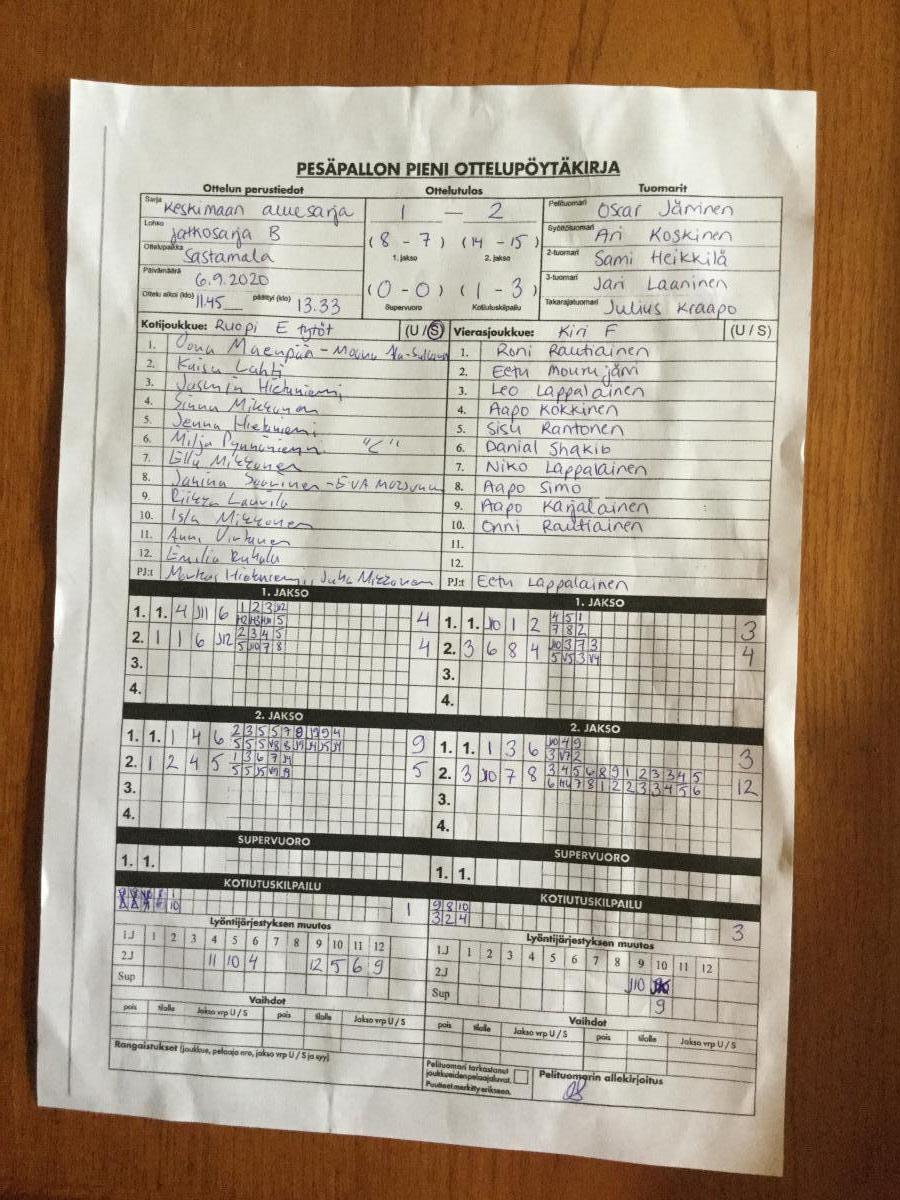 PESÄPALLON PIENI OTTELUPÖYTÄKIRJA
Ottelun perustiedot Ottelutulos Tuomarit
Sarja Keskimaan aluesarja 1 — 2 Pelituomari Oscar Jäminen
Lohko Jatkosarja B (8 - 7) (14 - 15) Syöttötuomari Ari Koskinen
Ottelupaikka Sastamala 1. jakso 2. jakso 2-tuomari Sami Heikkilä
Päivämäärä 6.9.2020 (0 - 0) (1 - 3) 3-tuomari Jari Laaninen
Ottelu alkoi (klo) 11.45 päättyi (klo) 13.33 Supervuoro Kotiutuskilpailu Takarajatuomari Julius Kraapo
Kotijoukkue: Ruopi E tytöt (U / S) Vierasjoukkue: Kiri F (U / S)
1. 1. Roni Rautiainen
2. Kaisu Lahti 2. Eetu Mourujärvi
3. Jasmin Hietaniemi 3. Leo Lappalainen
4. Sinna Mikkonen 4. Aapo Kokkinen
5. Jenna Hietaniemi 5. Sisu Rantonen
6. Milja "C" 6. Danial Shakib
7. Mikkonen 7. Niko Lappalainen
8. 8. Aapo Simo
9. Riikka Laurila 9. Aapo Karjalainen
10. Isla Mikkonen 10. Onni Rautiainen
11. Anni Virtanen 11.
12. Emilia 12.
PJ:t Markus Hietaniemi, Juha Mikkonen PJ:t Eetu Lappalainen
1. JAKSO 1. JAKSO
1. 1. 4 J11 6 1 2 3 J12 4 1. 1. J10 1 2 4 5 1 3
5 7 8 2
2. 1 1 6 J12 2 3 4 5 4 2. 3 6 8 4 J10 3 7 3 4
5 J10 7 8 5 V5 3 V4
3. 3.
4. 4.
2. JAKSO 2. JAKSO
1. 1. 1 4 6 2 3 5 5 7 8 9 4 9 1. 1. 1 3 6 J10 4 9 3
3 V7 2
2. 1 2 4 5 1 3 6 7 5 2. 3 J10 7 8 3 4 5 6 8 9 1 2 3 3 4 5 12
6 7 8 1 2 2 3 3 4 5 6
3. 3.
4. 4.
SUPERVUORO SUPERVUORO
1. 1. 1. 1.
KOTIUTUSKILPAILU KOTIUTUSKILPAILU
1 1 9 8 10 3
10 3 2 4
Lyöntijärjestyksen muutos Lyöntijärjestyksen muutos
1.J 1 2 3 4 5 6 7 8 9 10 11 12 1.J 1 2 3 4 5 6 7 8 9 10 11 12
2.J 11 10 4 12 5 6 9 2.J J10
Sup Sup 9
Vaihdot Vaihdot
pois tilalle Jakso vrp U / S pois tilalle Jakso vrp U / S pois tilalle Jakso vrp U / S pois tilalle Jakso vrp U / S
Rangaistukset (joukkue, pelaaja nro, jakso vrp U / S ja syy)
Pelituomari tarkastanut joukkueiden pelaajaluvat. Pelituomarin allekirjoitus
Puutteet merkitty erikseen.